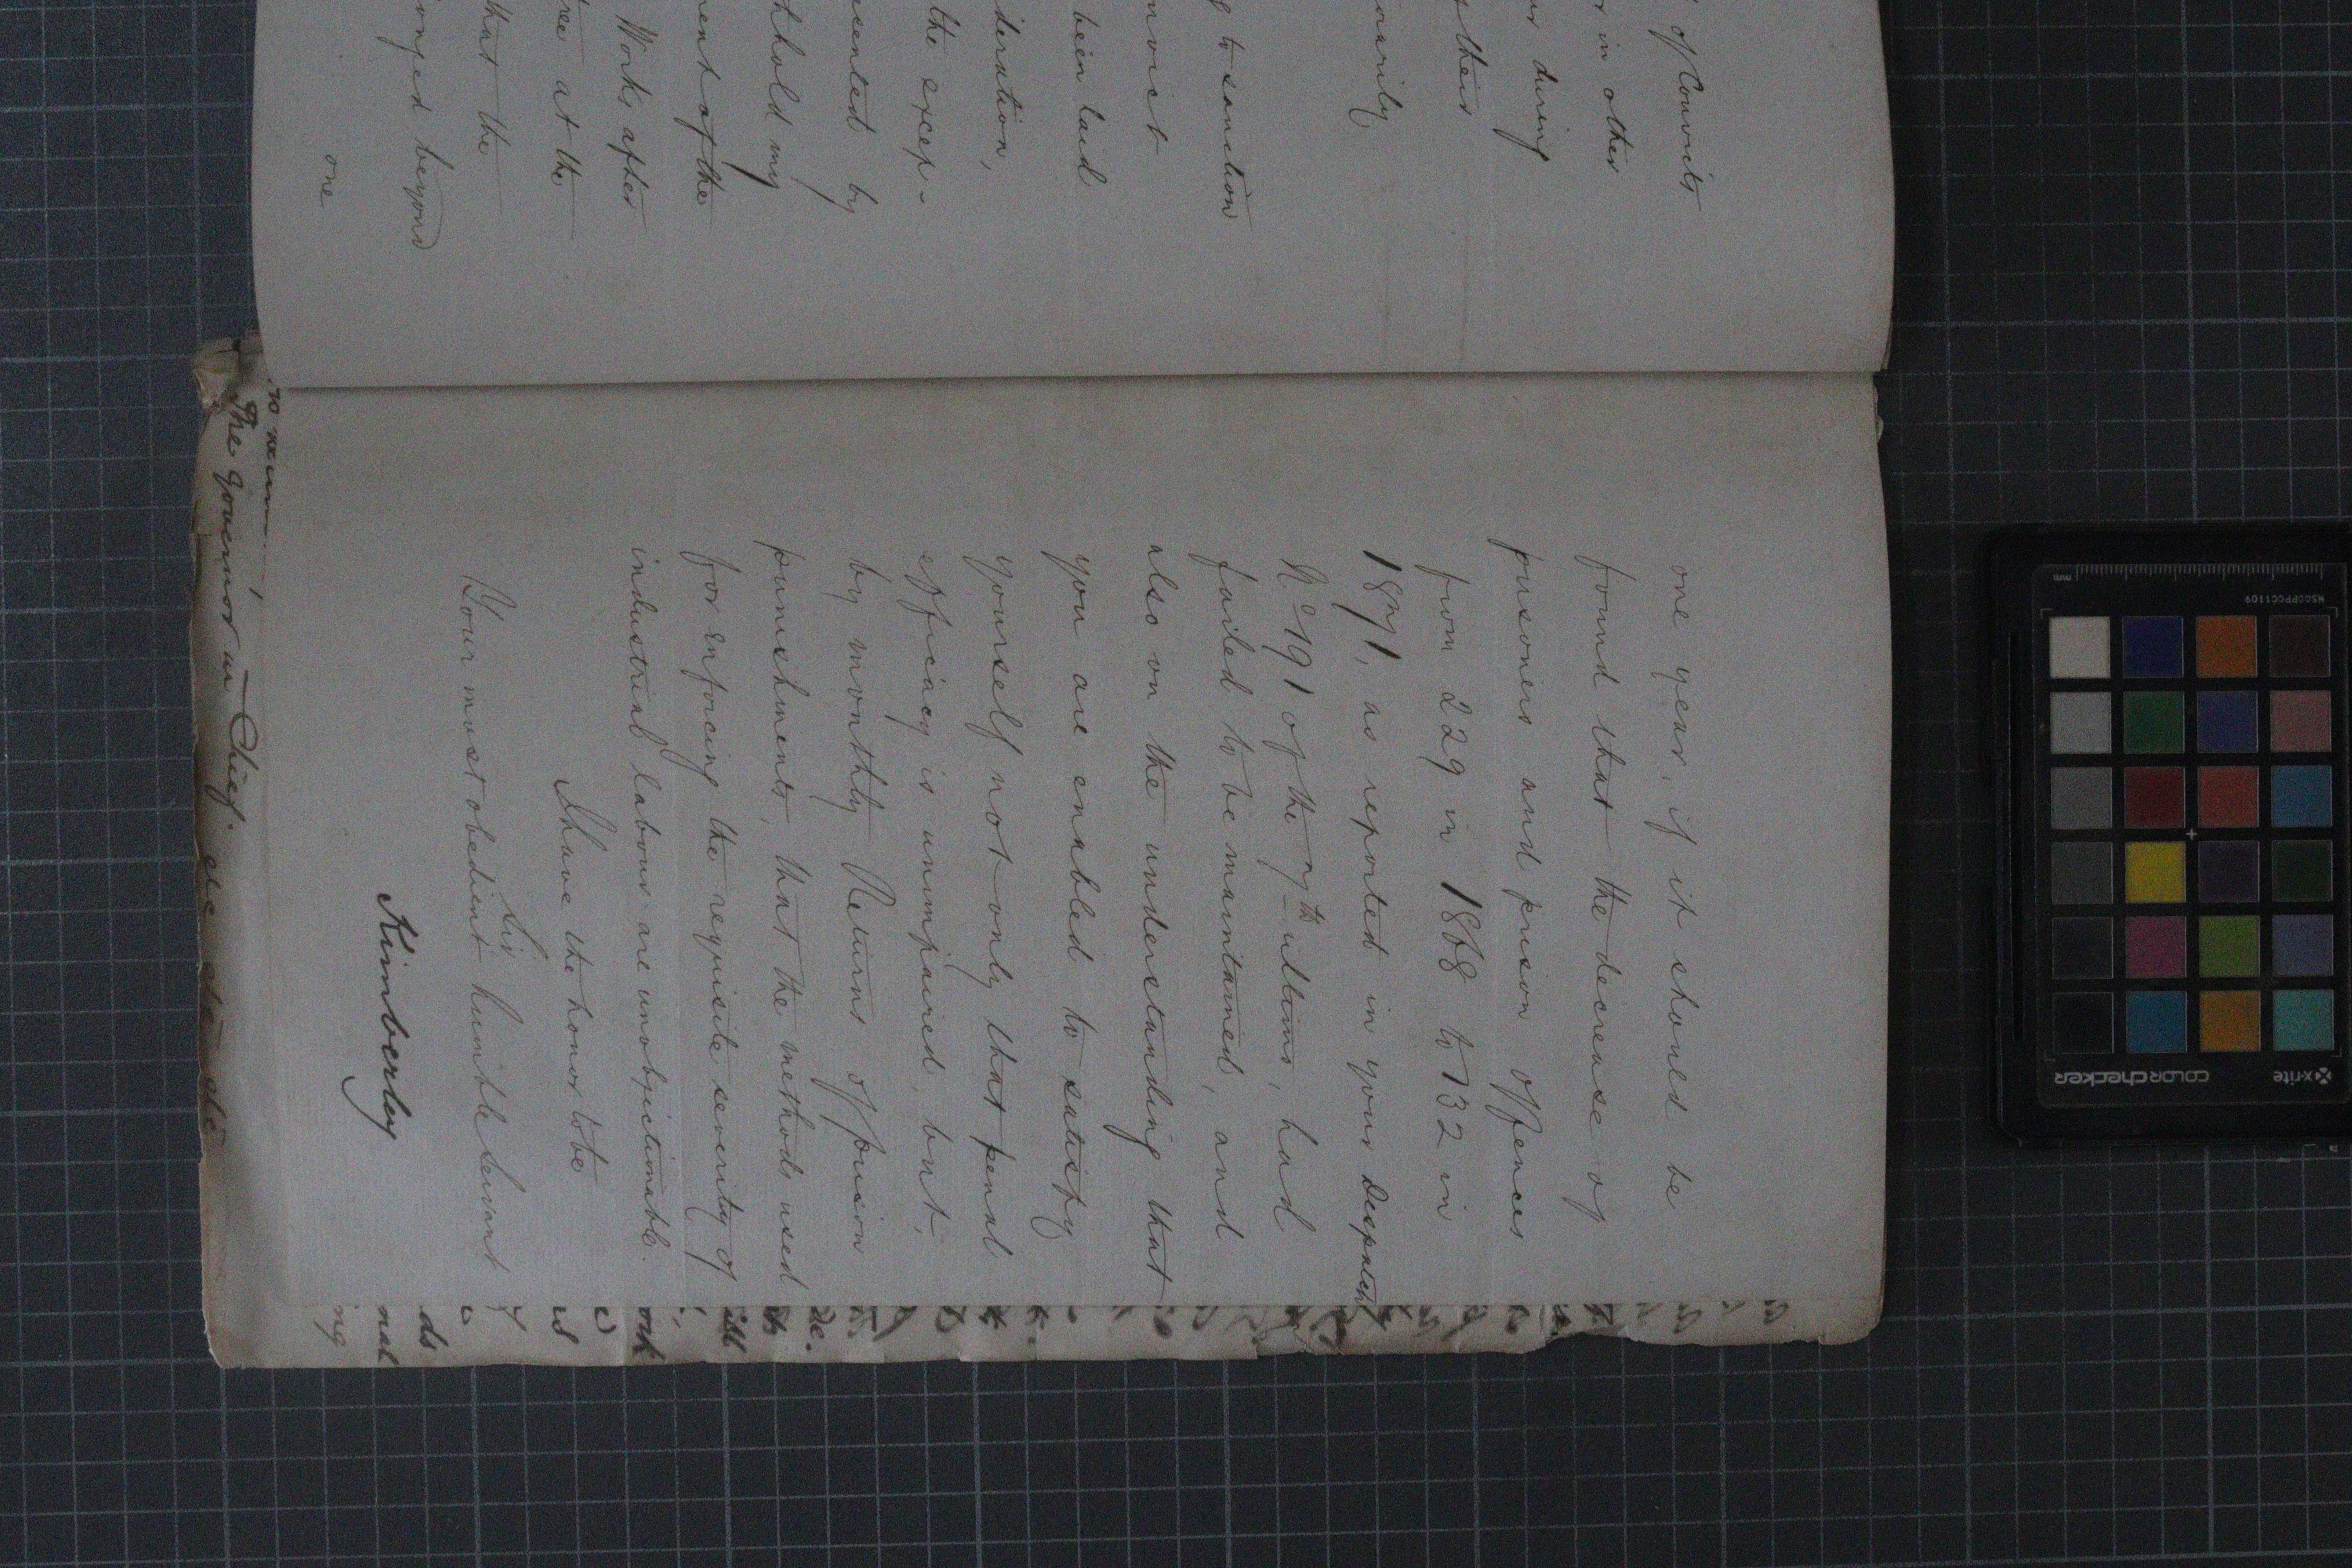 of Convits
in other
during
their
arily
to sanction
nvict
been laid
deration,
the excep-
sented by
thhold my
ment of the
Works after
at the
that the
onged beyond
one
one year, if it should be
found that the decrease of
prisoners and prison offences
from 229 in 1868 to 132 in
1871, as reported in your Despatch
No 191 of the 7th ultimo, had
failed to be maintained, and
also on the understanding that
you are enabled to satisfy
yourself not only that penal
efficacy is unimpaired, but,
by monthly Returns of prison
punishments, that the methods used
for enforcing the requisite severity of
industrial labour are unobjectionable.
I have the honor to be
Sir
Your most obedient humble Servant
Kimberley
The Governor in Chief. etc etc etc
de.
ill
ork
is
ds
nal
ing
x-rite
colorchecker
MSCCPPCC1109
mm